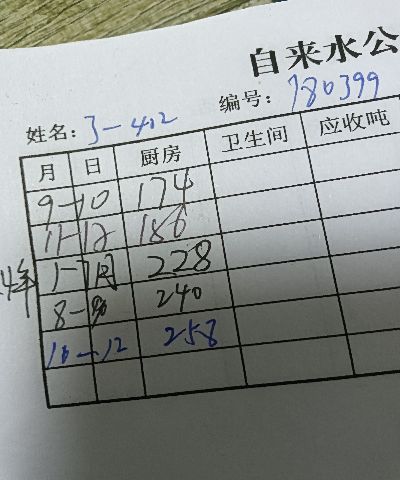 自来水公
编号: 780399
姓名: 3-402
月 日 厨房 卫生间 应收吨
9-10 174
11-12 186
1-7月 228
8- 240
10-12 258